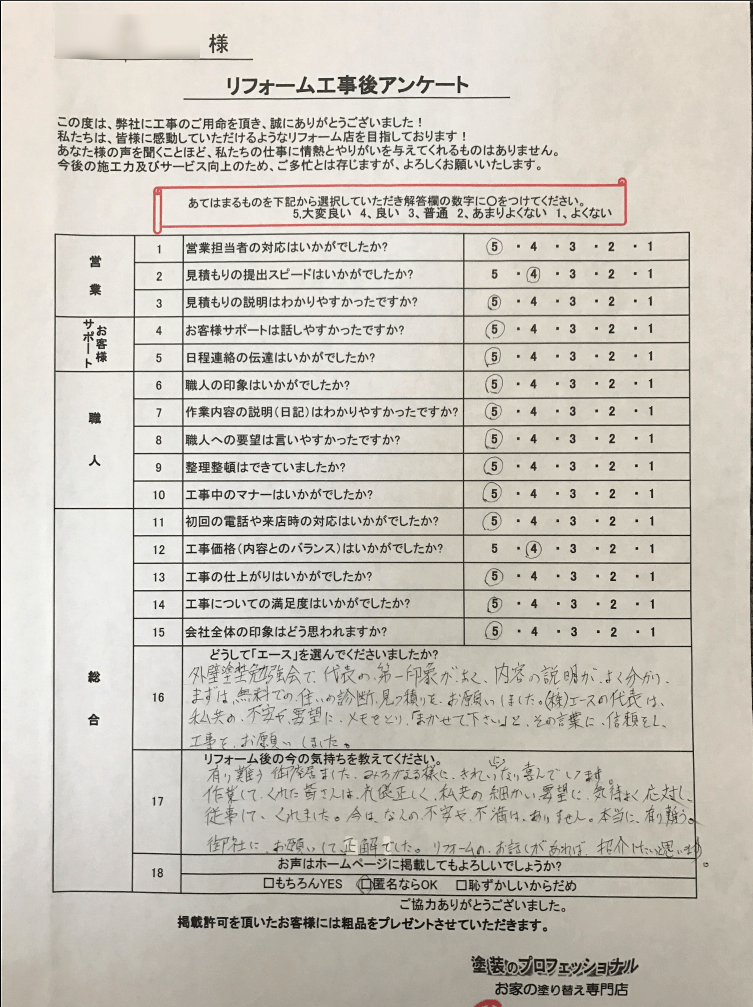 様
リフォーム工事後アンケート
この度は、弊社に工事のご用命を頂き、誠にありがとうございました！
私たちは、皆様に感動していただけるようなリフォーム店を目指しております！
あなた様の声を聞くことほど、私たちの仕事に情熱とやりがいを与えてくれるものはありません。
今後の施工力及びサービス向上のため、ご多忙とは存じますが、よろしくお願いいたします。
あてはまるものを下記から選択していただき解答欄の数字に○をつけてください。
5、大変良い 4、良い 3、普通 2、あまりよくない 1、よくない
営業
1 営業担当者の対応はいかがでしたか? 5 ・ 4 ・ 3 ・ 2 ・ 1
2 見積もりの提出スピードはいかがでしたか? 5 ・ 4 ・ 3 ・ 2 ・ 1
3 見積もりの説明はわかりやすかったですか? 5 ・ 4 ・ 3 ・ 2 ・ 1
お客様サポート
4 お客様サポートは話しやすかったですか? 5 ・ 4 ・ 3 ・ 2 ・ 1
5 日程連絡の伝達はいかがでしたか? 5 ・ 4 ・ 3 ・ 2 ・ 1
職人
6 職人の印象はいかがでしたか? 5 ・ 4 ・ 3 ・ 2 ・ 1
7 作業内容の説明(日記)はわかりやすかったですか? 5 ・ 4 ・ 3 ・ 2 ・ 1
8 職人への要望は言いやすかったですか? 5 ・ 4 ・ 3 ・ 2 ・ 1
9 整理整頓はできていましたか? 5 ・ 4 ・ 3 ・ 2 ・ 1
10 工事中のマナーはいかがでしたか? 5 ・ 4 ・ 3 ・ 2 ・ 1
総合
11 初回の電話や来店時の対応はいかがでしたか? 5 ・ 4 ・ 3 ・ 2 ・ 1
12 工事価格(内容とのバランス)はいかがでしたか? 5 ・ 4 ・ 3 ・ 2 ・ 1
13 工事の仕上がりはいかがでしたか? 5 ・ 4 ・ 3 ・ 2 ・ 1
14 工事についての満足度はいかがでしたか? 5 ・ 4 ・ 3 ・ 2 ・ 1
15 会社全体の印象はどう思われますか? 5 ・ 4 ・ 3 ・ 2 ・ 1
16 どうして「エース」を選んでくださいましたか?
外壁塗装勉強会で、代表の第一印象がよく、内容の説明がよく分かり、
まずは、無料での、住いの診断、見つ積りを、お願いしました。(株)エースの代表は、
私共の、不安や、要望に、メモをとり、「まかせて下さい」と、その言葉に、信頼をし、
工事を、お願いしました。
17 リフォーム後の今の気持ちを教えてください。
有り難う御座居ました、みちがえる様に、きれいになり喜んでいます。
作業して、くれた皆さんは、礼儀正しく、私共の細かい要望に、気持よく応対し、
従事して、くれました。今は、なんの不安や、不満は、ありません。本当に、有り難う。
御社に、お願いして正解でした。リフォームの、お話しがあれば、紹介したいと思います。
18 お声はホームページに掲載してもよろしいでしょうか?
□もちろんYES □匿名ならOK □恥ずかしいからだめ
ご協力ありがとうございました。
掲載許可を頂いたお客様には粗品をプレゼントさせていただきます。
塗装のプロフェッショナル
お家の塗り替え専門店